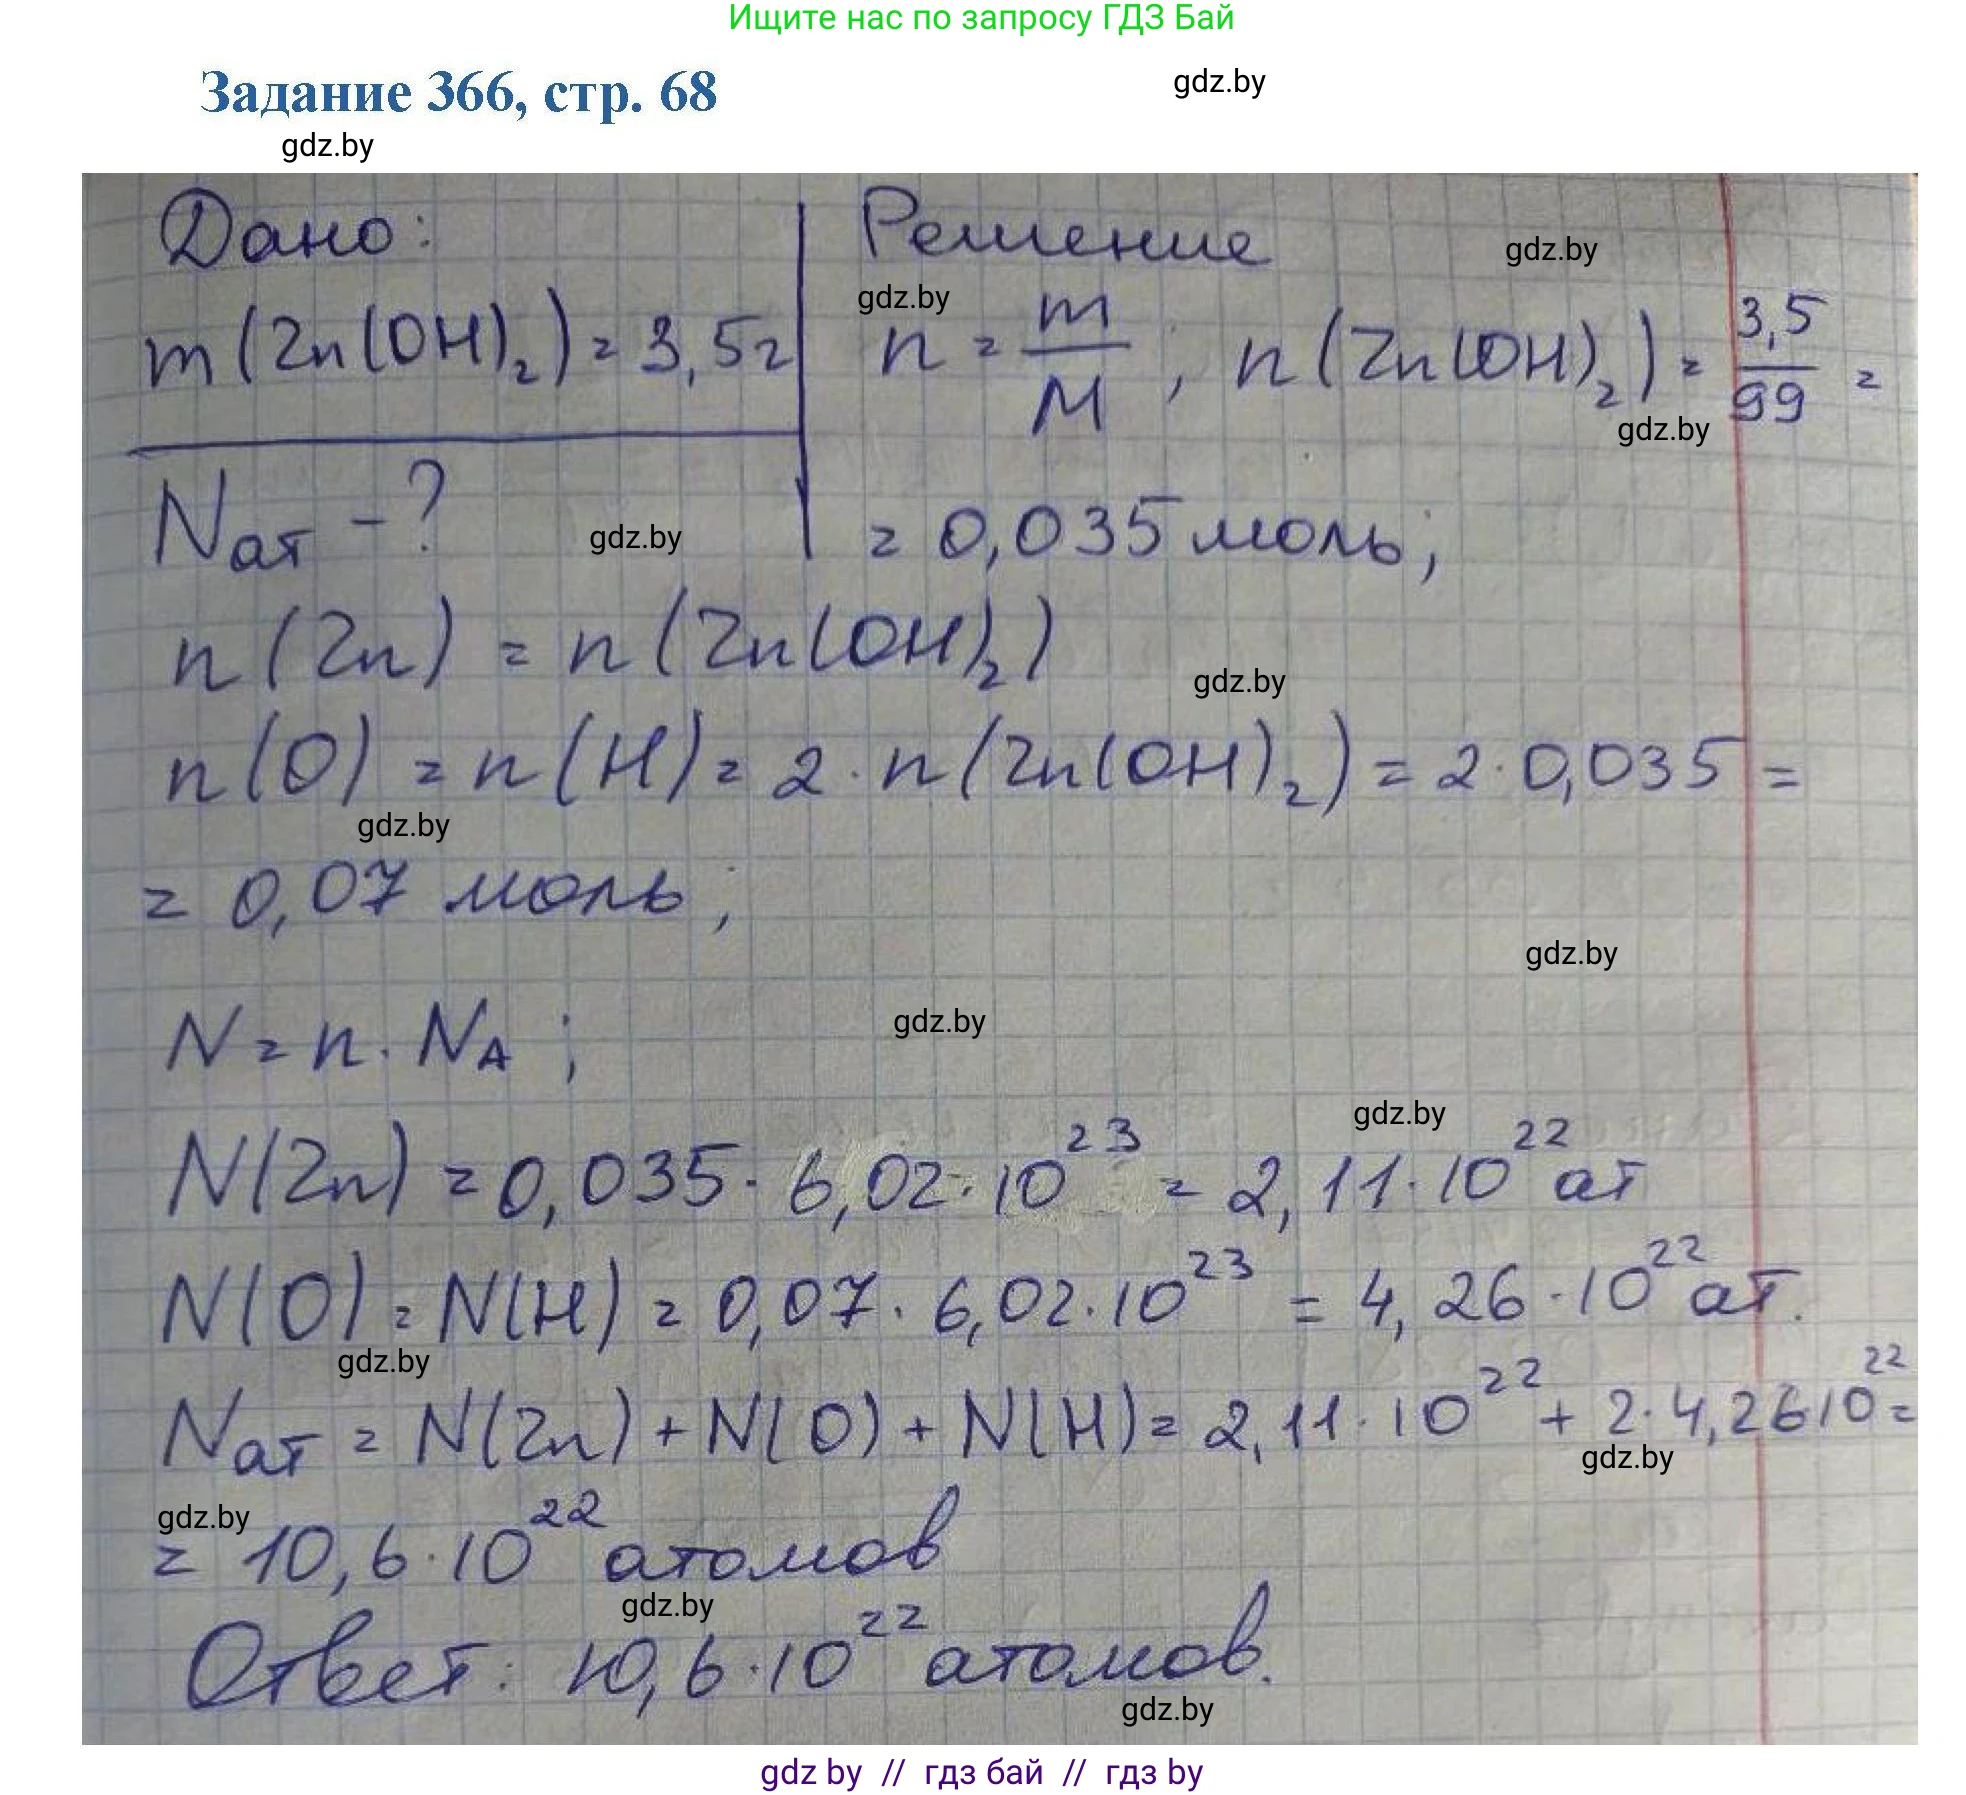 Ищите нас по запросу ГДЗ Бай
Задание 366, стр. 68
gdz.by
gdz.by
Дано:
m(Zn(OH)₂) = 3,5г
Nат - ?
gdz.by
Решение
gdz.by
gdz.by
n = m/M ; n(Zn(OH)₂) = 3,5/99 =
gdz.by
= 0,035 моль;
n(Zn) = n(Zn(OH)₂)
gdz.by
n(O) = n(H) = 2 · n(Zn(OH)₂) = 2·0,035 =
gdz.by
= 0,07 моль;
gdz.by
N = n · NA ;
gdz.by
gdz.by
N(Zn) = 0,035 · 6,02·10²³ = 2,11·10²² ат
N(O) = N(H) = 0,07 · 6,02·10²³ = 4,26·10²² ат.
gdz.by
Nат = N(Zn) + N(O) + N(H) = 2,11·10²² + 2·4,26 10²² =
gdz.by
gdz.by
= 10,6·10²² атомов
gdz.by
Ответ: 10,6·10²² атомов.
gdz.by
gdz by // гдз бай // гдз by